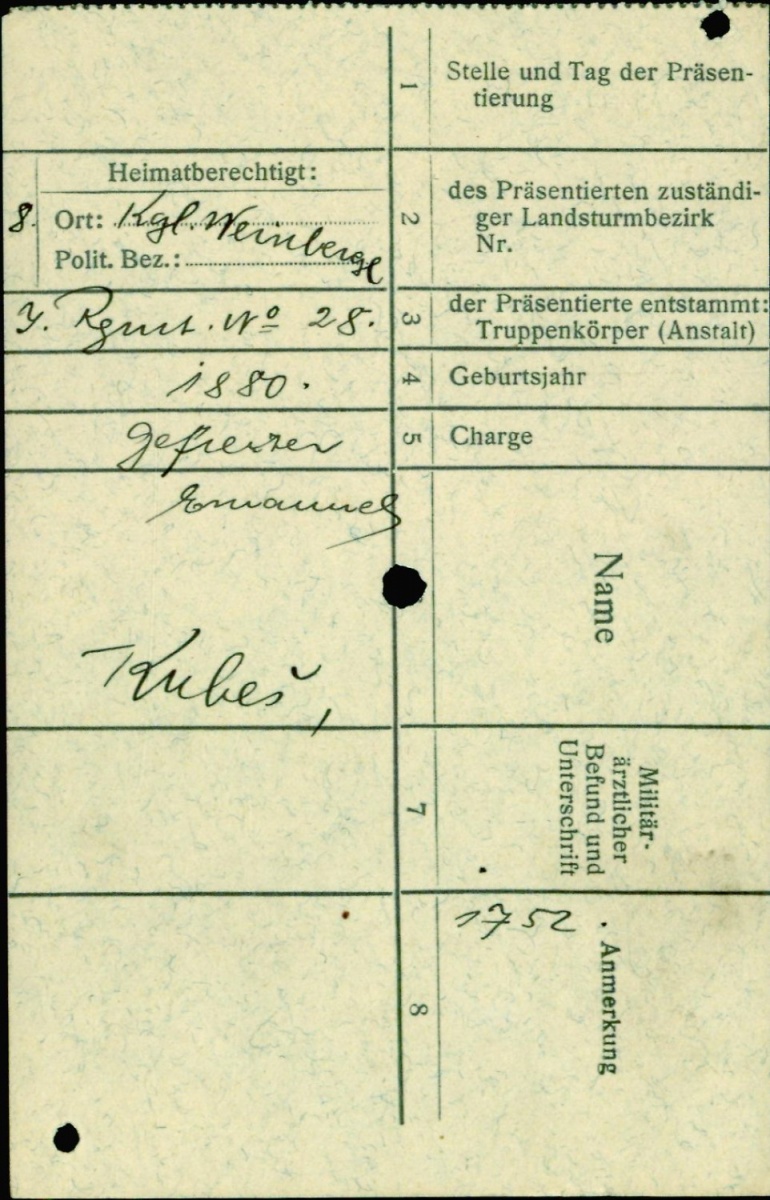 1
Stelle und Tag der Präsen-
tierung
Heimatberechtigt:
8.
Ort: Kgl. Weinberge
Polit. Bez.:
2
des Präsentierten zuständi-
ger Landsturmbezirk
Nr.
J. Rgmt. No 28.
3
der Präsentierte entstammt:
Truppenkörper (Anstalt)
1880.
4
Geburtsjahr
Gefreiter
5
Charge
Emanuel
Kubeš,
Name
7
Militär-
ärztlicher
Befund und
Unterschrift
1752
8
Anmerkung